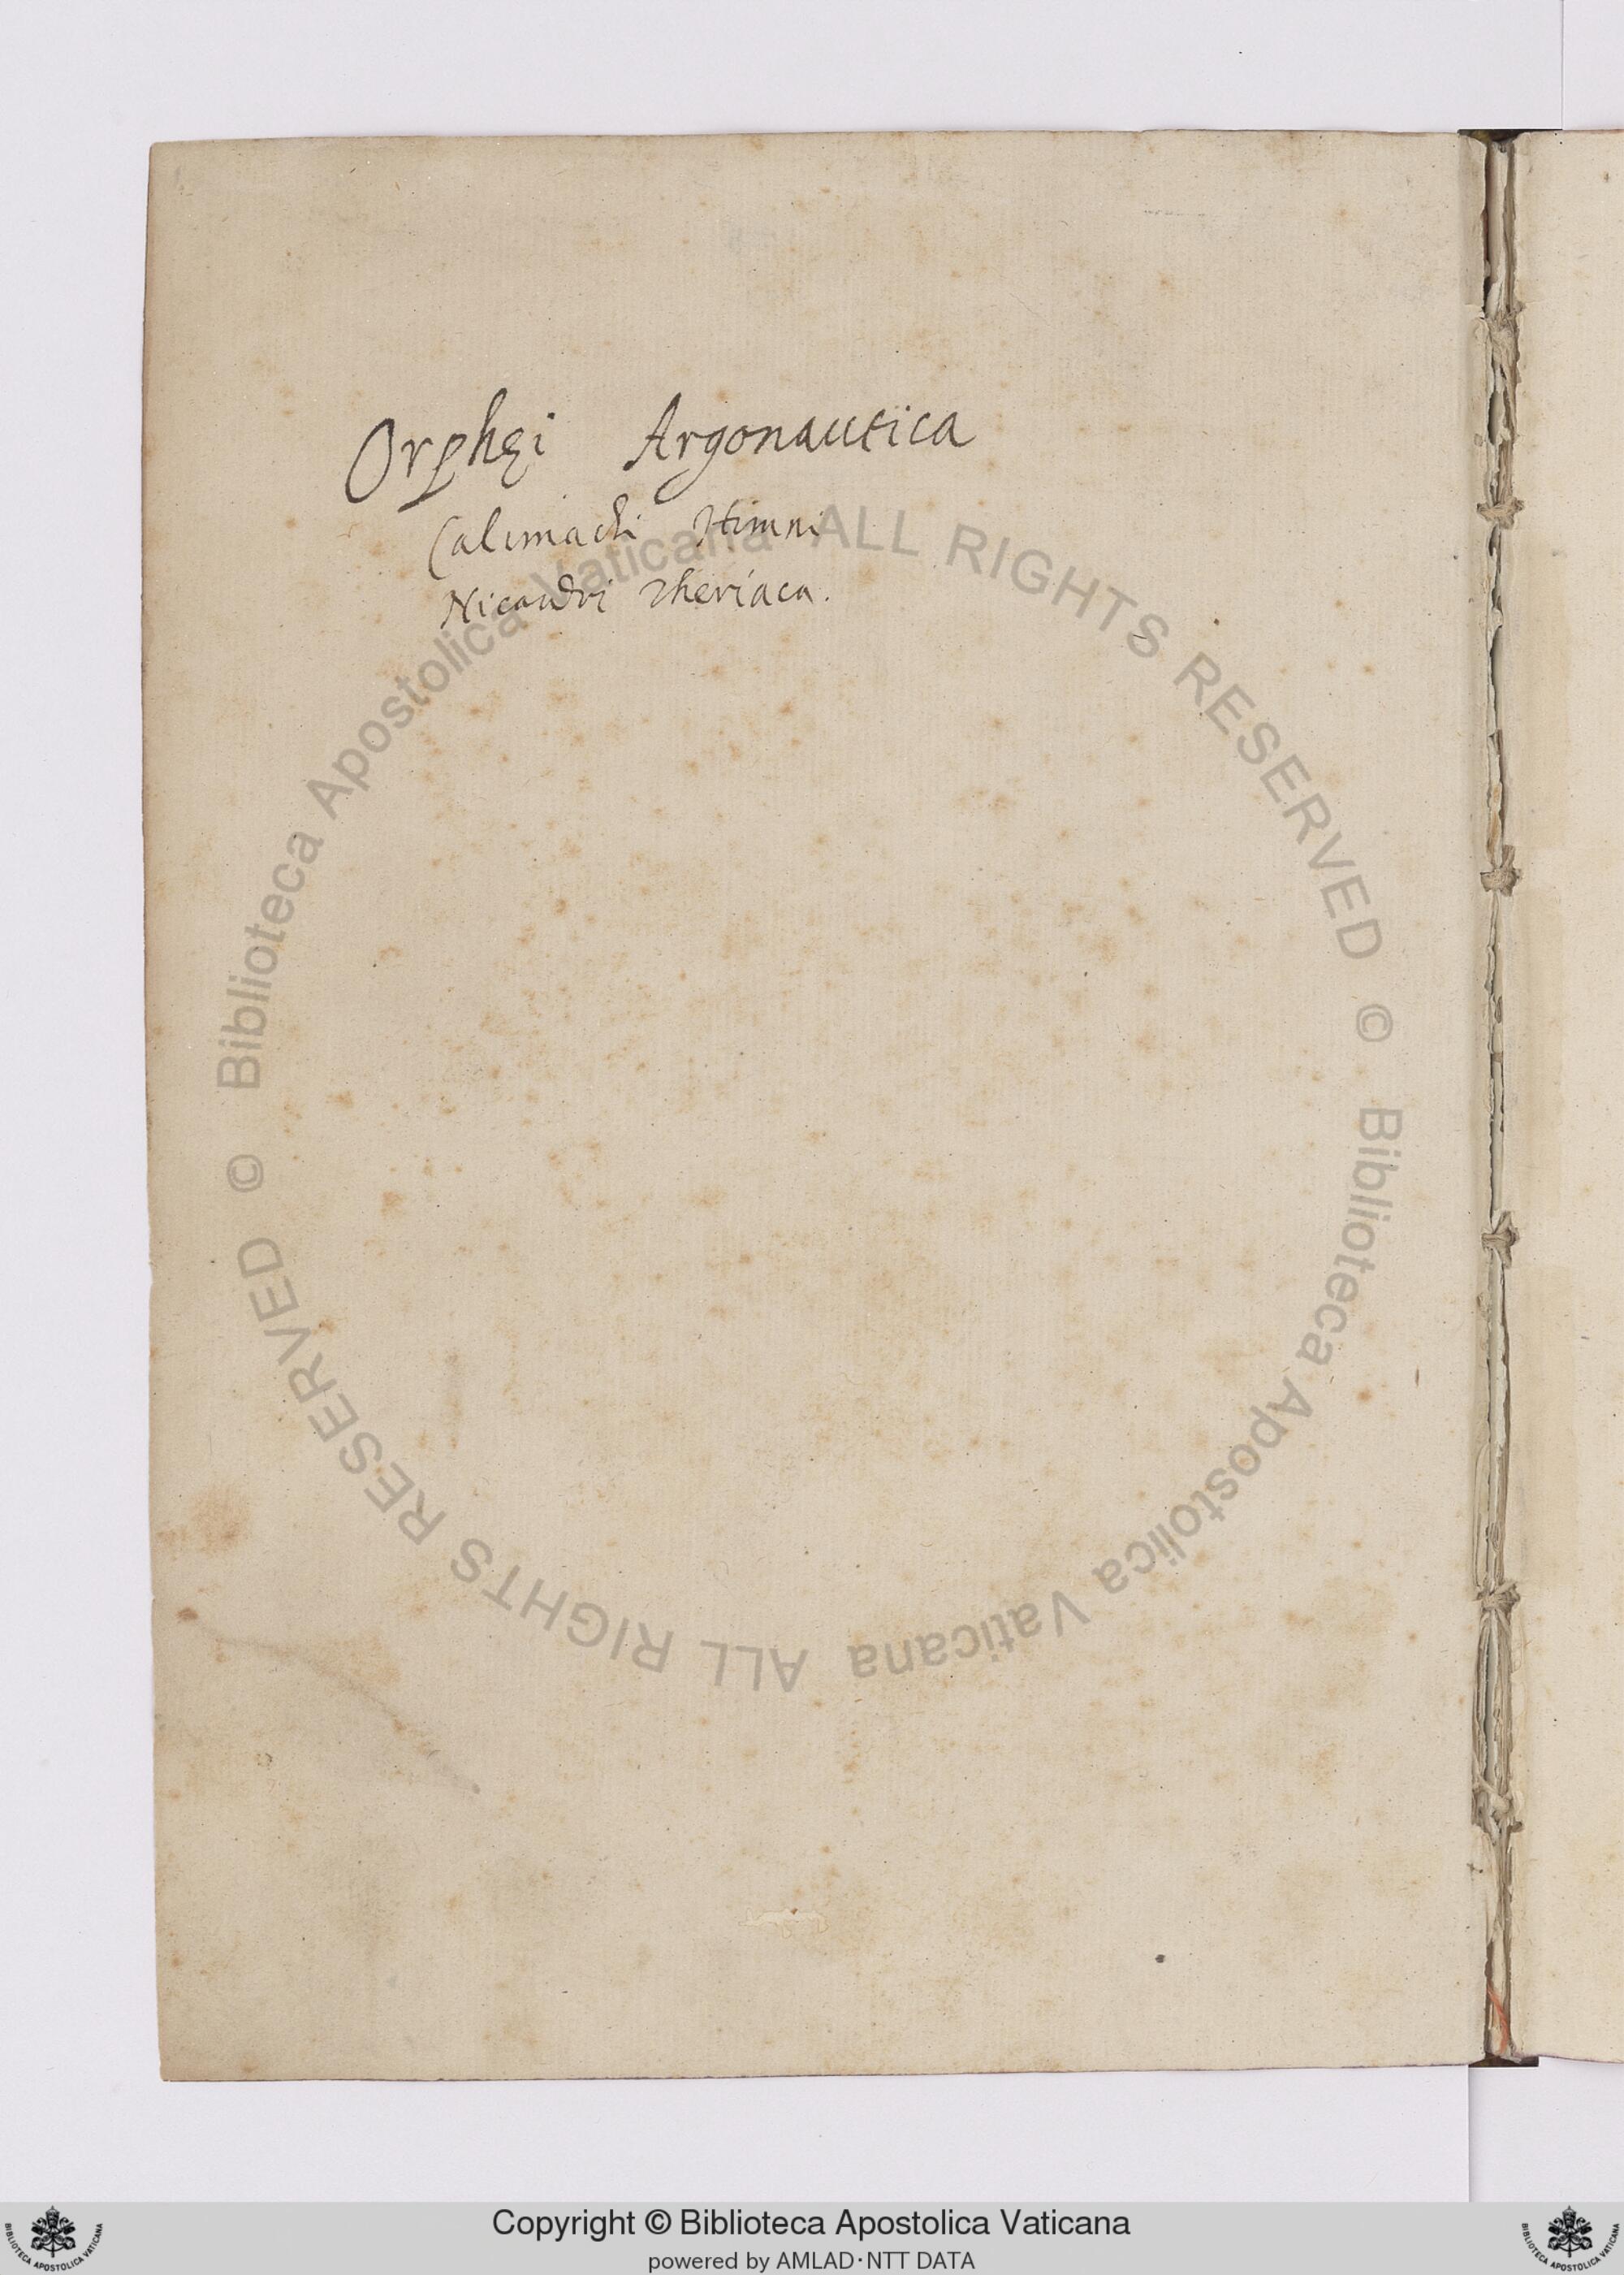 Orphęi Argonautica
Calimachi Himni
Nicandri Theriaca.
© Biblioteca Apostolica Vaticana ALL RIGHTS RESERVED
© Biblioteca Apostolica Vaticana ALL RIGHTS RESERVED
Copyright © Biblioteca Apostolica Vaticana
powered by AMLAD·NTT DATA
BIBLIOTECA APOSTOLICA VATICANA
BIBLIOTECA APOSTOLICA VATICANA